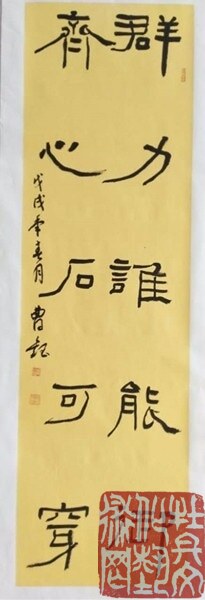 群力誰能
齊心石可穿
戊戌年春月 曹